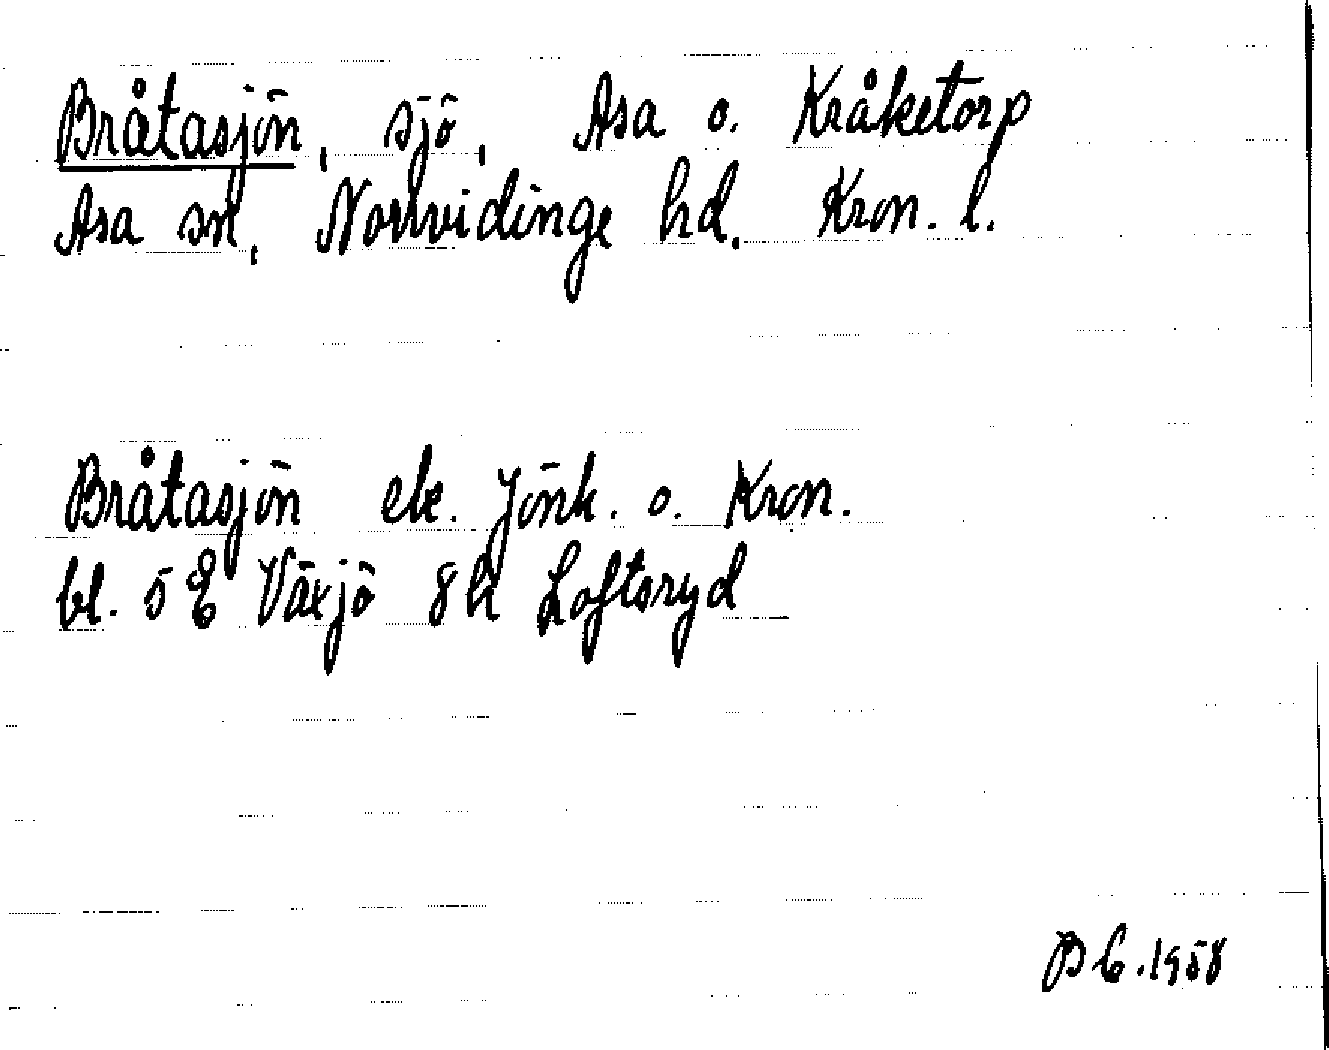 Bråtasjön, sjö, Asa o. Kråketorp
Asa sn, Norrvidinge hd, Kron. l.
Bråtasjön ek. Jönk. o. Kron.
bl. 5 E Växjö 8 h Loftsryd
B C. 1958